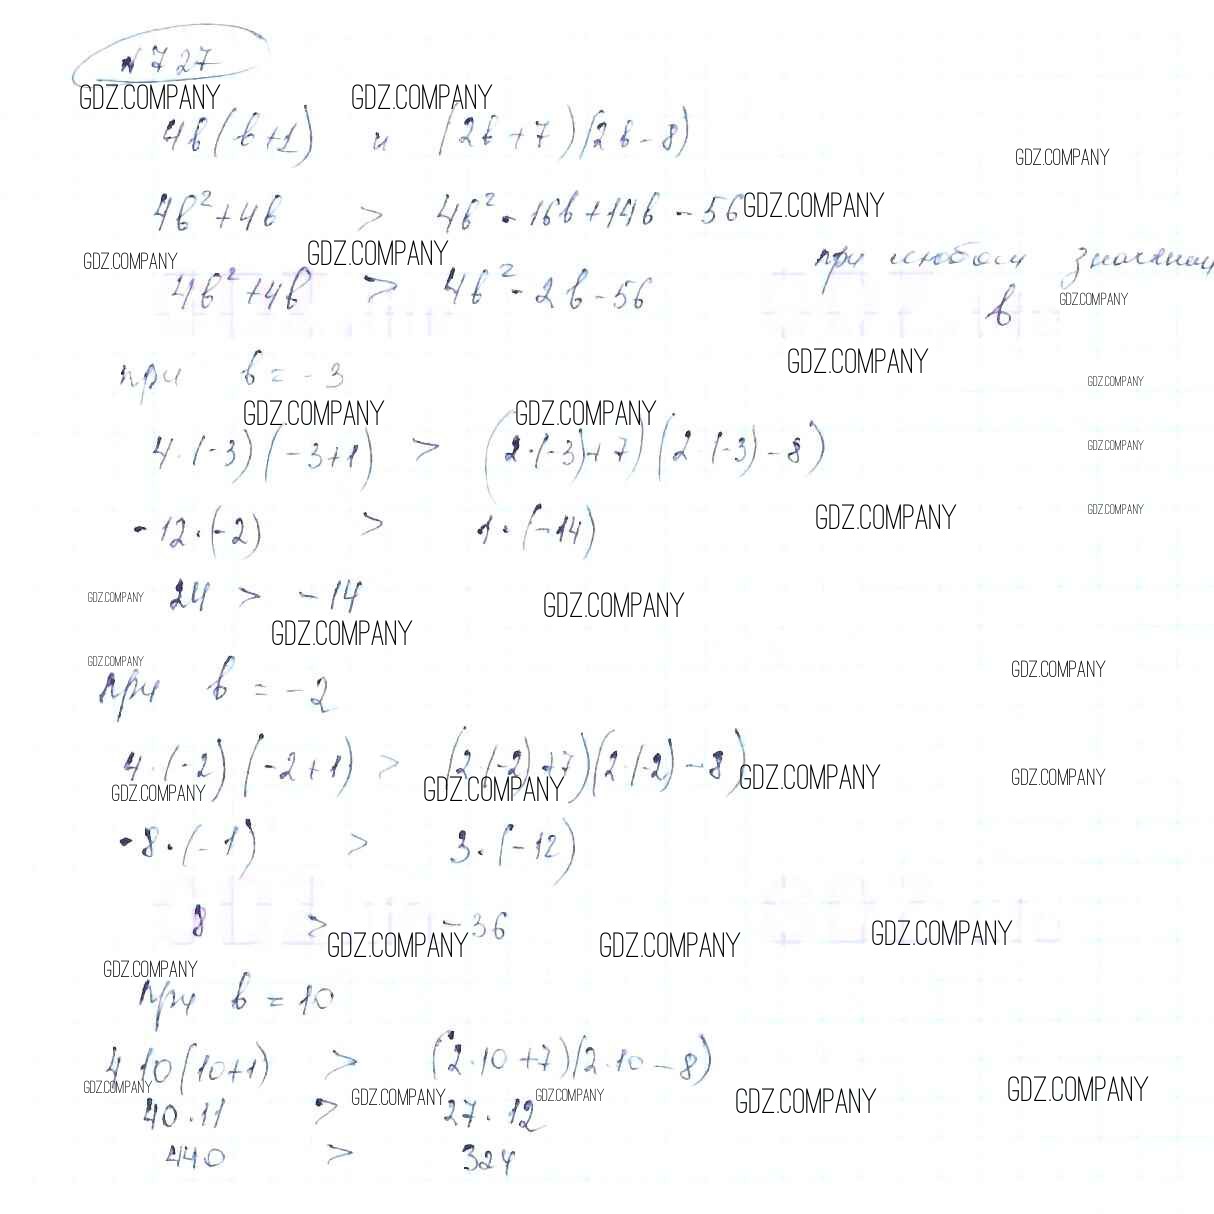 № 727
GDZ.COMPANY GDZ.COMPANY
4в(в+1) и (2в+7)(2в-8)
GDZ.COMPANY
4в²+4в > 4в²-16в+14в-56 GDZ.COMPANY
GDZ.COMPANY GDZ.COMPANY при любом
4в²+4в > 4в²-2в-56
в GDZ.COMPANY
при в=-3 GDZ.COMPANY
GDZ.COMPANY
GDZ.COMPANY GDZ.COMPANY
4·(-3)(-3+1) > (2·(-3)+7)(2·(-3)-8) GDZ.COMPANY
-12·(-2) > 1·(-14) GDZ.COMPANY GDZ.COMPANY
GDZ.COMPANY 24 > -14 GDZ.COMPANY
GDZ.COMPANY
GDZ.COMPANY GDZ.COMPANY
при в=-2
4·(-2)(-2+1) > (2·(-2)+7)(2·(-2)-8) GDZ.COMPANY GDZ.COMPANY
GDZ.COMPANY GDZ.COMPANY
-8·(-1) > 3·(-12)
8 > -36
GDZ.COMPANY GDZ.COMPANY GDZ.COMPANY
GDZ.COMPANY
при в=10
4·10(10+1) > (2·10+7)(2·10-8)
GDZ.COMPANY GDZ.COMPANY GDZ.COMPANY GDZ.COMPANY GDZ.COMPANY
40·11 > 27·12
440 > 324